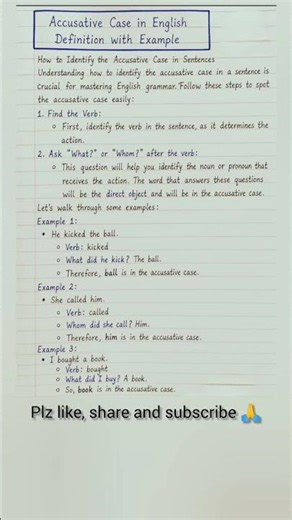 Accusative Case in English
Definition with Example
How to Identify the Accusative Case in Sentences
Understanding how to identify the accusative case in a sentence is
crucial for mastering English grammar. Follow these steps to spot
the accusative case easily:
1. Find the Verb:
o First, identify the verb in the sentence, as it determines the
action.
2. Ask "What?" or "Whom?" after the verb:
o This question will help you identify the noun or pronoun that
receives the action. The word that answers these questions
will be the direct object and will be in the accusative case.
Let's walk through some examples:
Example 1:
• He kicked the ball.
o Verb: kicked
o What did he kick? The ball.
o Therefore, ball is in the accusative case.
Example 2:
• She called him.
o Verb: called
o Whom did she call? Him.
o Therefore, him is in the accusative case.
Example 3:
• I bought a book.
o Verb: bought
o What did I buy? A book.
o So, book is in the accusative case.
Plz like, share and subscribe 🙏